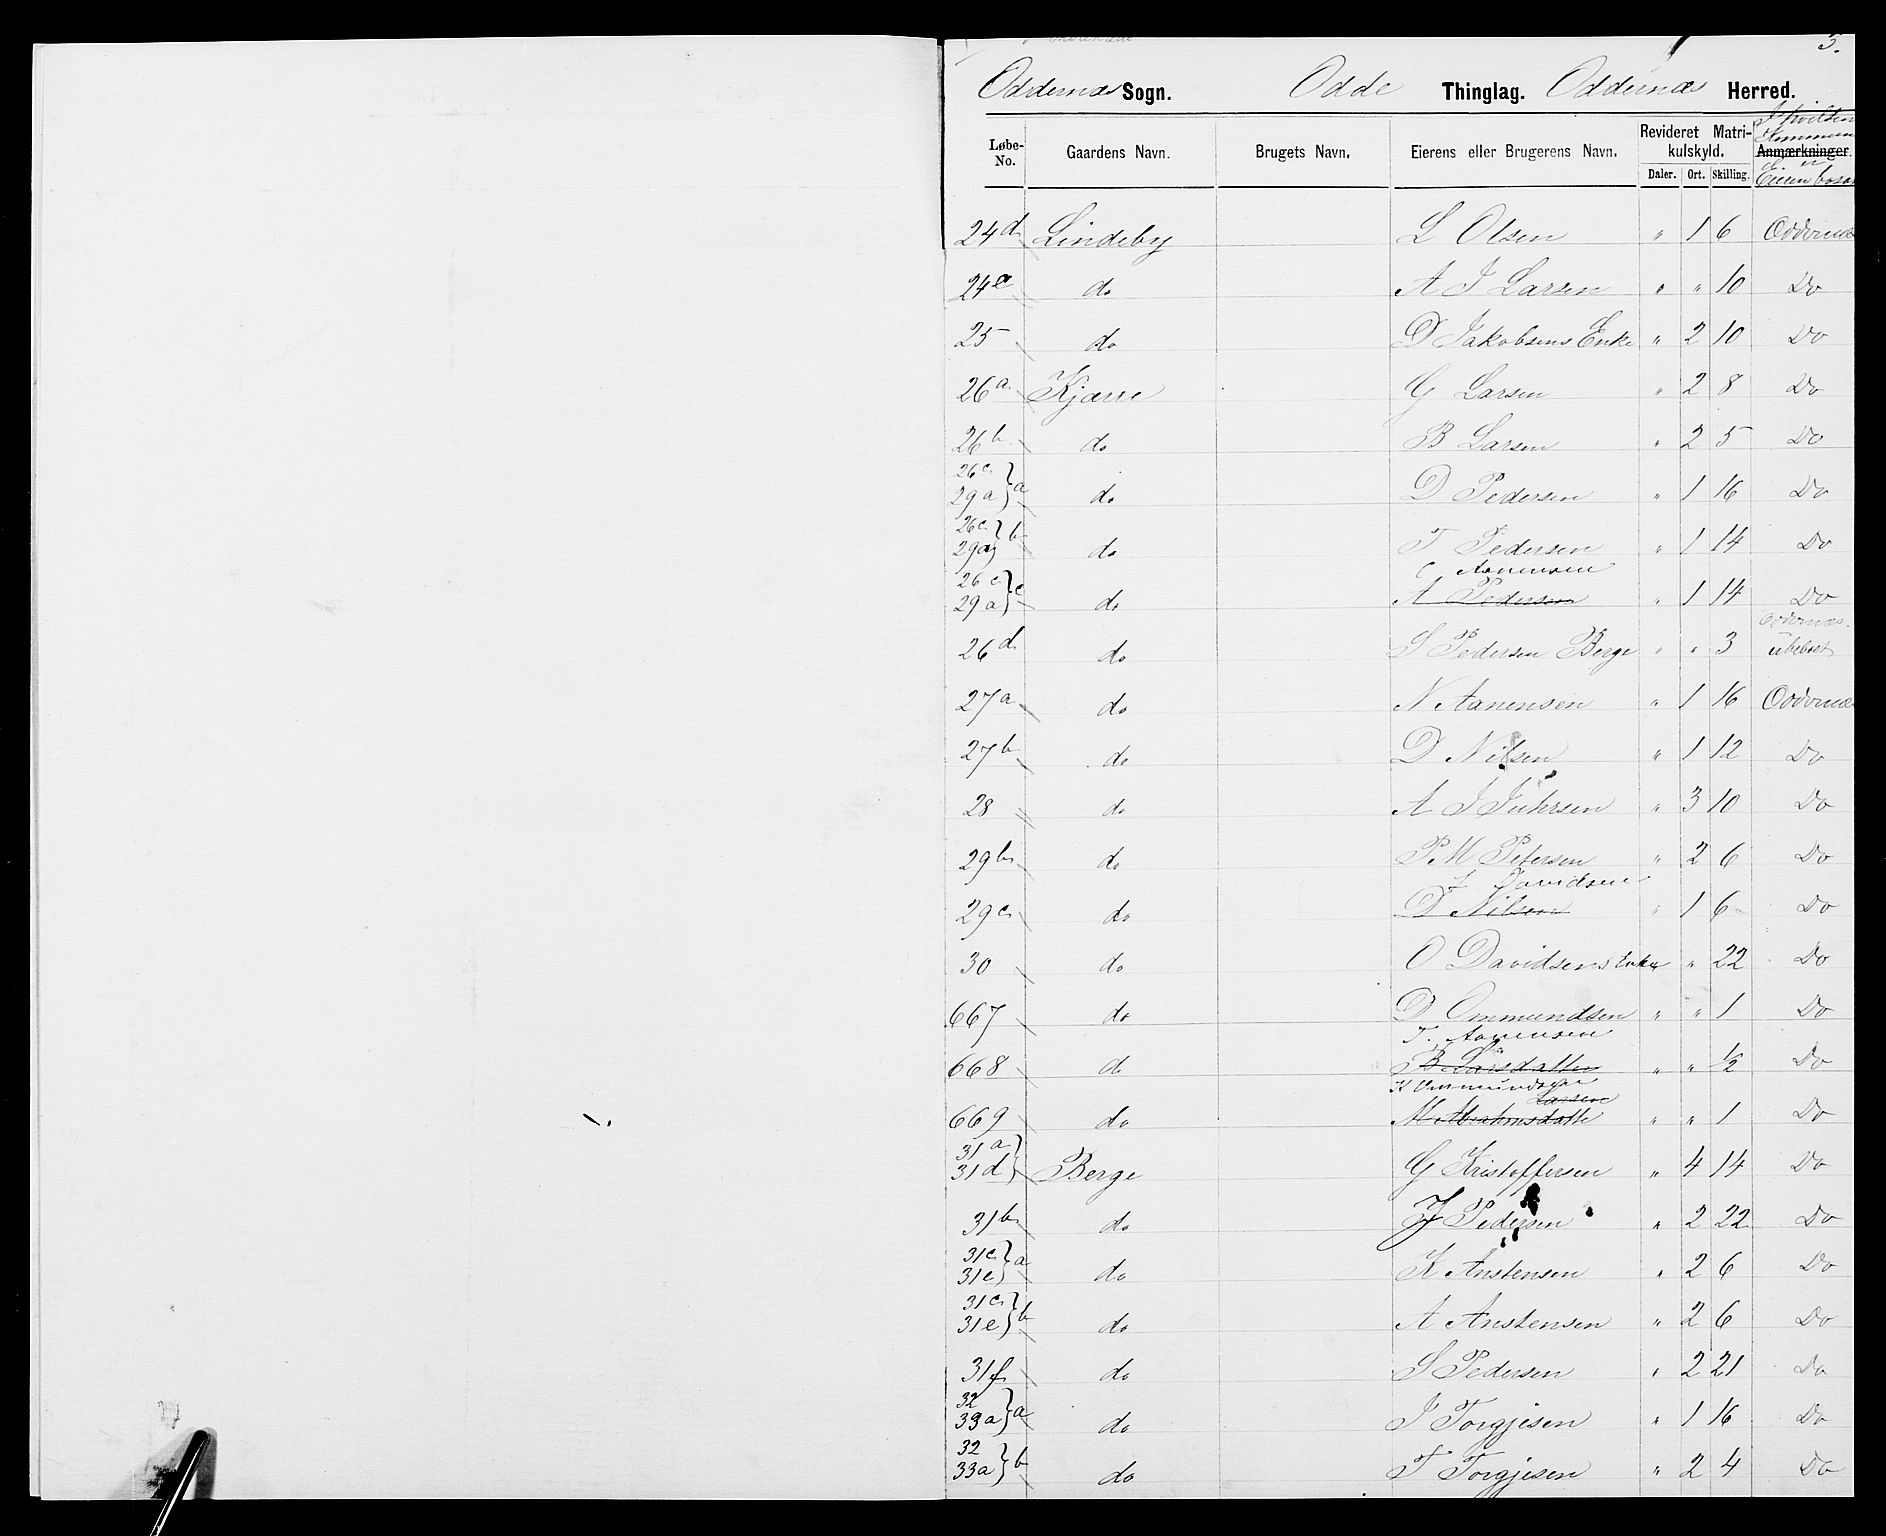 3.
Oddernæs Sogn. Odde Thinglag. Oddernæs Herred.
Løbe-No. Gaardens Navn. Brugets Navn. Eierens eller Brugerens Navn. Revideret Matrikulskyld. Daler. Ort. Skilling. I hvilken Anmærkninger. Eieren bosat
24d Lindeby L Olsen " 1 6 Oddernæs
24e do A J Larsen " " 10 Do
25 do D Jakobsens Enke " 2 10 Do
26a Kjærre G Larsen " 2 8 Do
26b do B Larsen " 2 5 Do
26c 29a } a do D Pedersen " 1 16 Do
26c 29a } b do T Pedersen " 1 14 Do
C Aanensen
26c 29a } c do A Pedersen " 1 14 Do
Oddernæs.
26d do S Pedersen Berge " " 3 ubeboet
27a do N Aanensen " 1 16 Oddernæs
27b do D Nilsen " 1 12 Do
28 do A J Juhrsen " 3 10 Do
29b do P M Petersen " 2 6 Do
L Davidsen
29c do D Nilsen " 1 6 Do
30 do O Davidsens Enke " " 22 Do
667 do D Ommundsen " " 1 Do
T. Aanensen
668 do B Larsdatter " " ½ Do
K Ommundsen
Larsen
669 do M Abrahmsdatte " " 1 Do
31a 31d } Berge G Kristoffersen " 4 14 Do
31b do J Pedersen " 2 22 Do
31c 31e } a do K Anstensen " 2 6 Do
31c 31e } b do A Anstensen " 2 6 Do
31f do S Pedersen " 2 21 Do
32 33a } a do J Torgjesen " 1 16 Do
32 33a } b do T Torgjesen " 2 4 Do